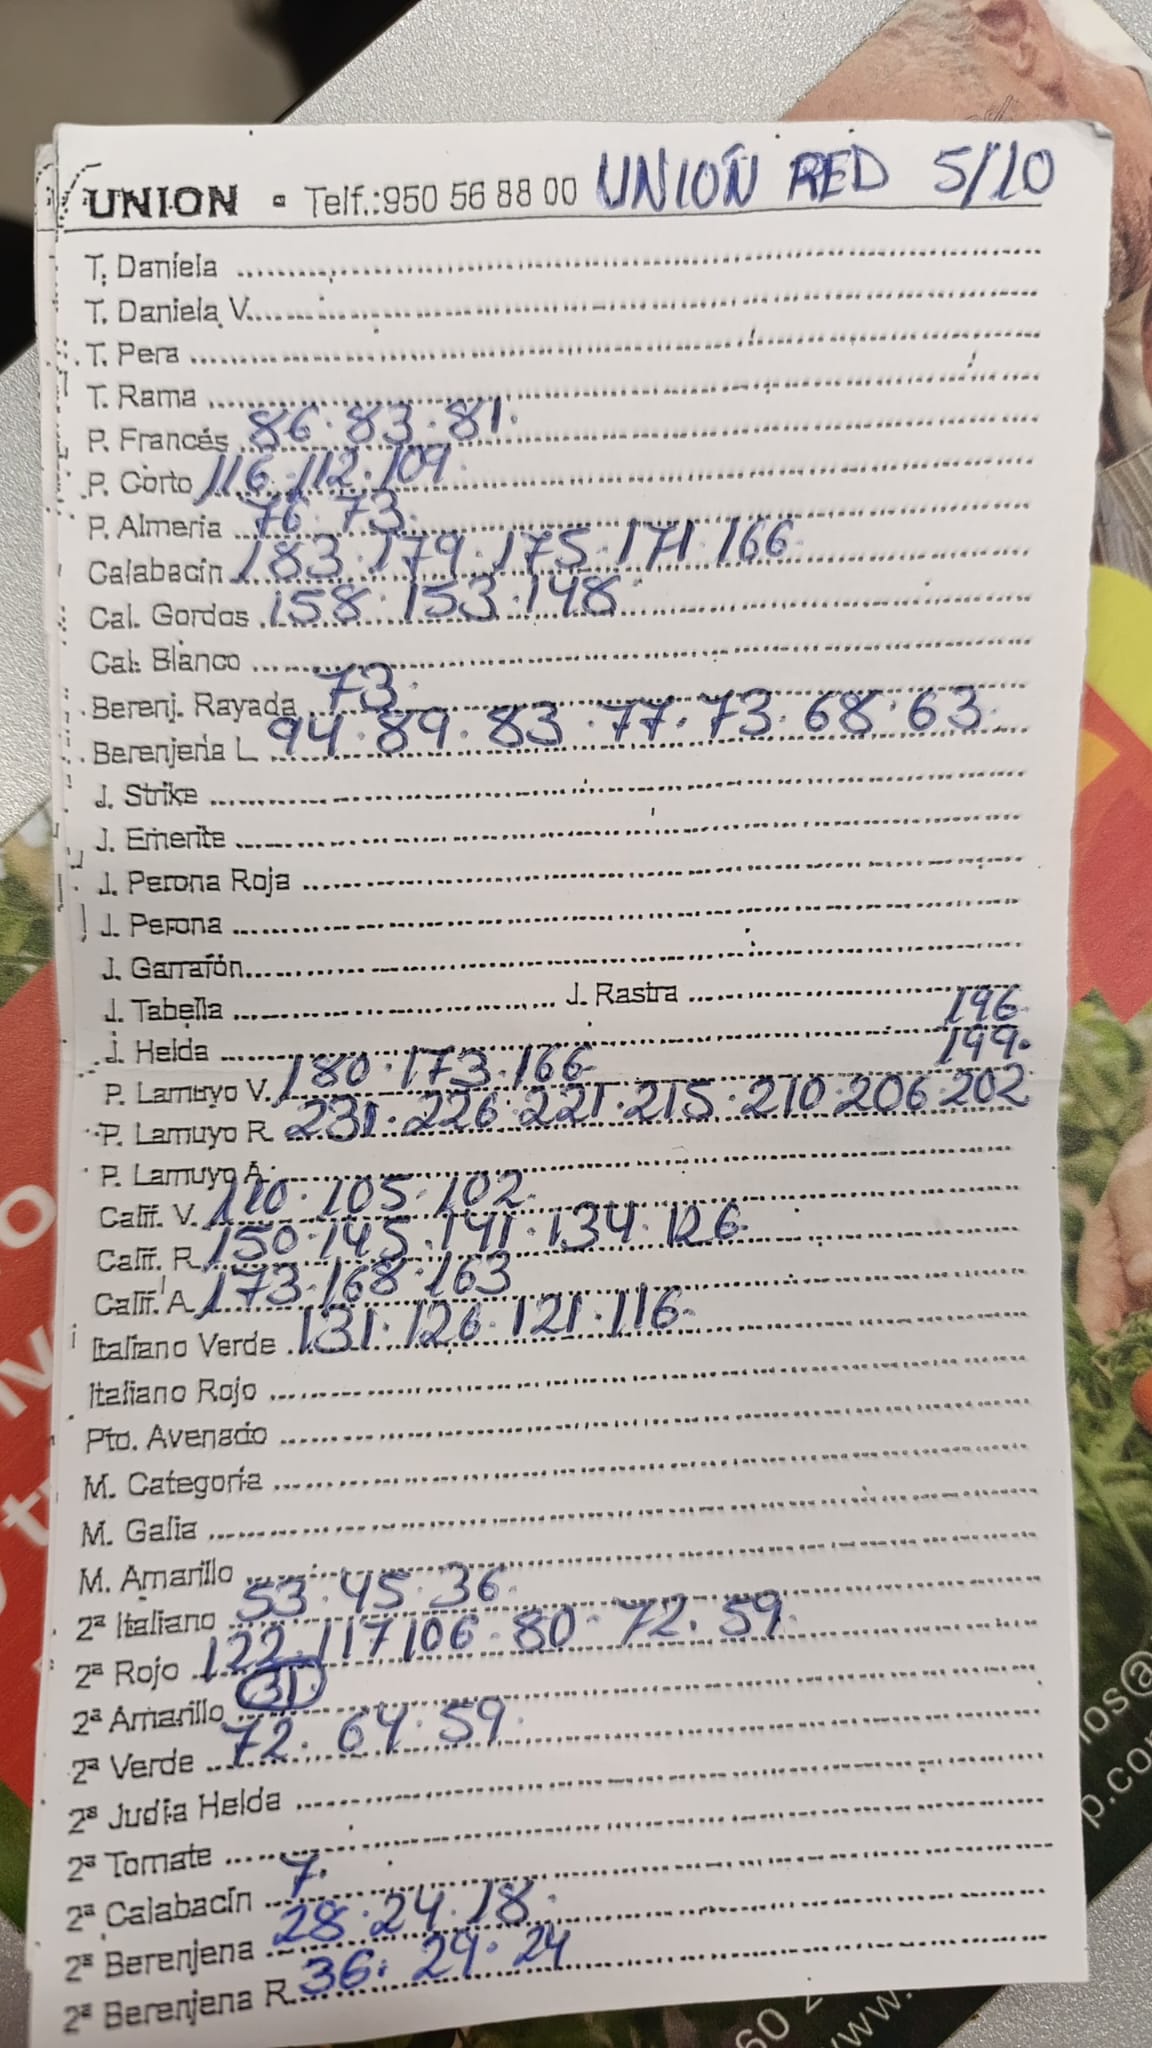 UNION - Telf.:950 56 88 00 UNIÓN RED 5/10
T. Daniela
T. Daniela V.
T. Pera
T. Rama
P. Francés 86·83·81·
P. Corto 116·112·109·
P. Almería 76·73·
Calabacín 183·179·175·171·166·
Cal. Gordos 158·153·148·
Cal. Blanco
Berenj. Rayada 73·
Berenjena L 94·89·83·77·73·68·63·
J. Strike
J. Emerite
J. Perona Roja
J. Perona
J. Garrafón
J. Tabella J. Rastra
J. Helda 196·
P. Lamuyo V. 180·173·166· 199·
P. Lamuyo R. 231·226·221·215·210·206·202
P. Lamuyo A.
Calif. V. 110·105·102·
Calif. R. 150·145·141·134·126·
Calif. A. 173·168·163
Italiano Verde 131·126·121·116·
Italiano Rojo
Pto. Avenado
M. Categoría
M. Galia
M. Amarillo
2ª Italiano 53·45·36·
2ª Rojo 122·117 106·80·72·59·
2ª Amarillo 31·
2ª Verde 72·64·59·
2ª Judía Helda
2ª Tomate
2ª Calabacín 7·
2ª Berenjena 28·24·18·
2ª Berenjena R. 36·29·24